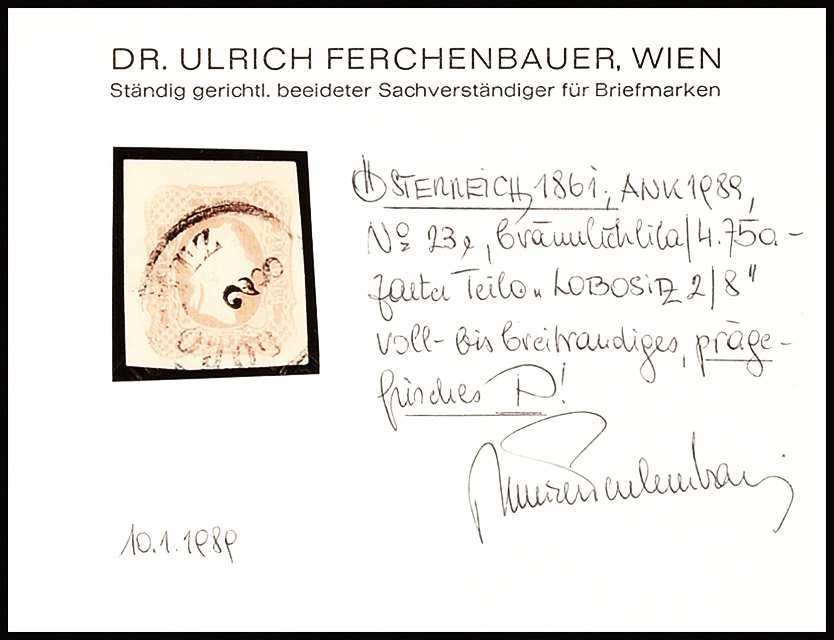 DR. ULRICH FERCHENBAUER, WIEN
Ständig gerichtl. beeideter Sachverständiger für Briefmarken
ÖSTERREICH 1861, ANK 1989,
No 23, bräunlichlila/4.75a-
zarter Teilo „LOBOSITZ 2/8"
voll- bis breitrandiges, präge-
frisches P!
10.1.1989